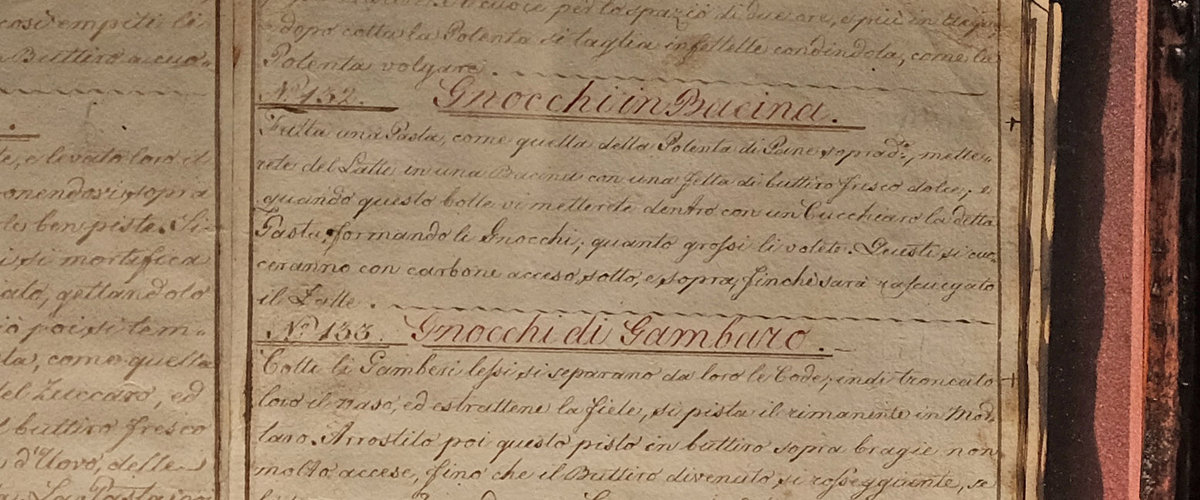 così empiti li
Buttiro a cuo-
te, e levato loro il
ponendovi sopra
le ben piste. Si-
i si mortifica
gettandolo
iò poi si tem-
la, come quella
del Zuccaro, ed
l buttiro fresco
d'Uovo, delle
La Pasta
cuoce per lo spazio di due ore, e più in
dopo cotta la Polenta si taglia in fettette condindola, come la
Polenta volgare.
N.° 132. Gnocchi in Bacina.
Fatta una Pasta, come quella della Polenta di Pane soprad.ª, mette-
rete del Latte in una Bacina con una fetta di buttiro fresco dolce; e
quando questo bolle vi metterete dentro con un Cucchiaro la detta
Pasta, formando li Gnocchi, quanto grossi li volete. Questi si cuo-
ceranno con carbone acceso sotto, e sopra, finchè sarà rasciugato
il Latte.
N.° 133. Gnocchi di Gambaro.
Cotti li Gamberi lessi si separano da loro le Code, indi troncato
loro il naso, ed estrattene la fiele, si pista il rimanente in Mor-
taro. Arrostito poi questo pisto in buttiro sopra bragie non
molto accese, fino che il Buttiro divenuto si rosseggiante, se